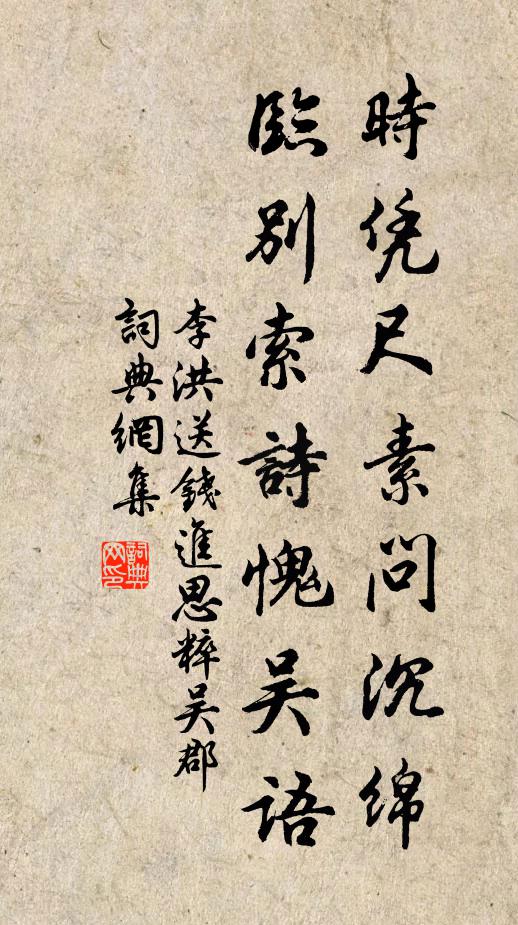 時凭尺素問沉绵
臨别索詩愧吴語
李洪送錢進思粹吴郡
詞典網集
詞典网印